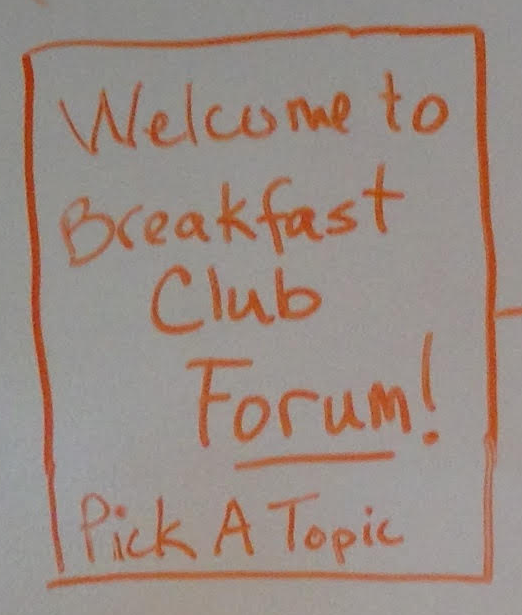 Welcome to
Breakfast
Club
Forum!
Pick A Topic